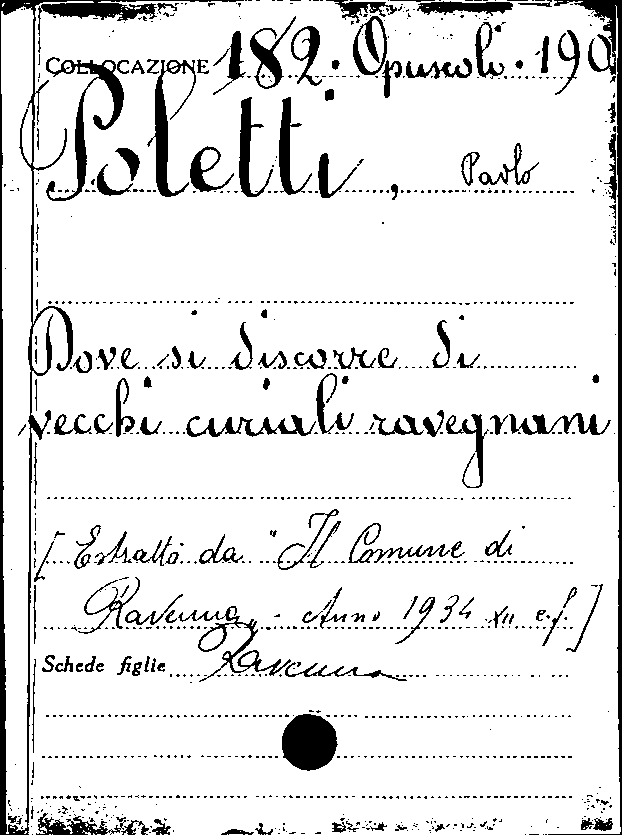 COLLOCAZIONE 182. Opuscoli. 190
Poletti, Paolo
Dove si discorre di
vecchi curiali ravegnani
[Estratto da "Il Comune di
Ravenna" - Anno 1934 XII e.f.]
Schede figlie Ravenna